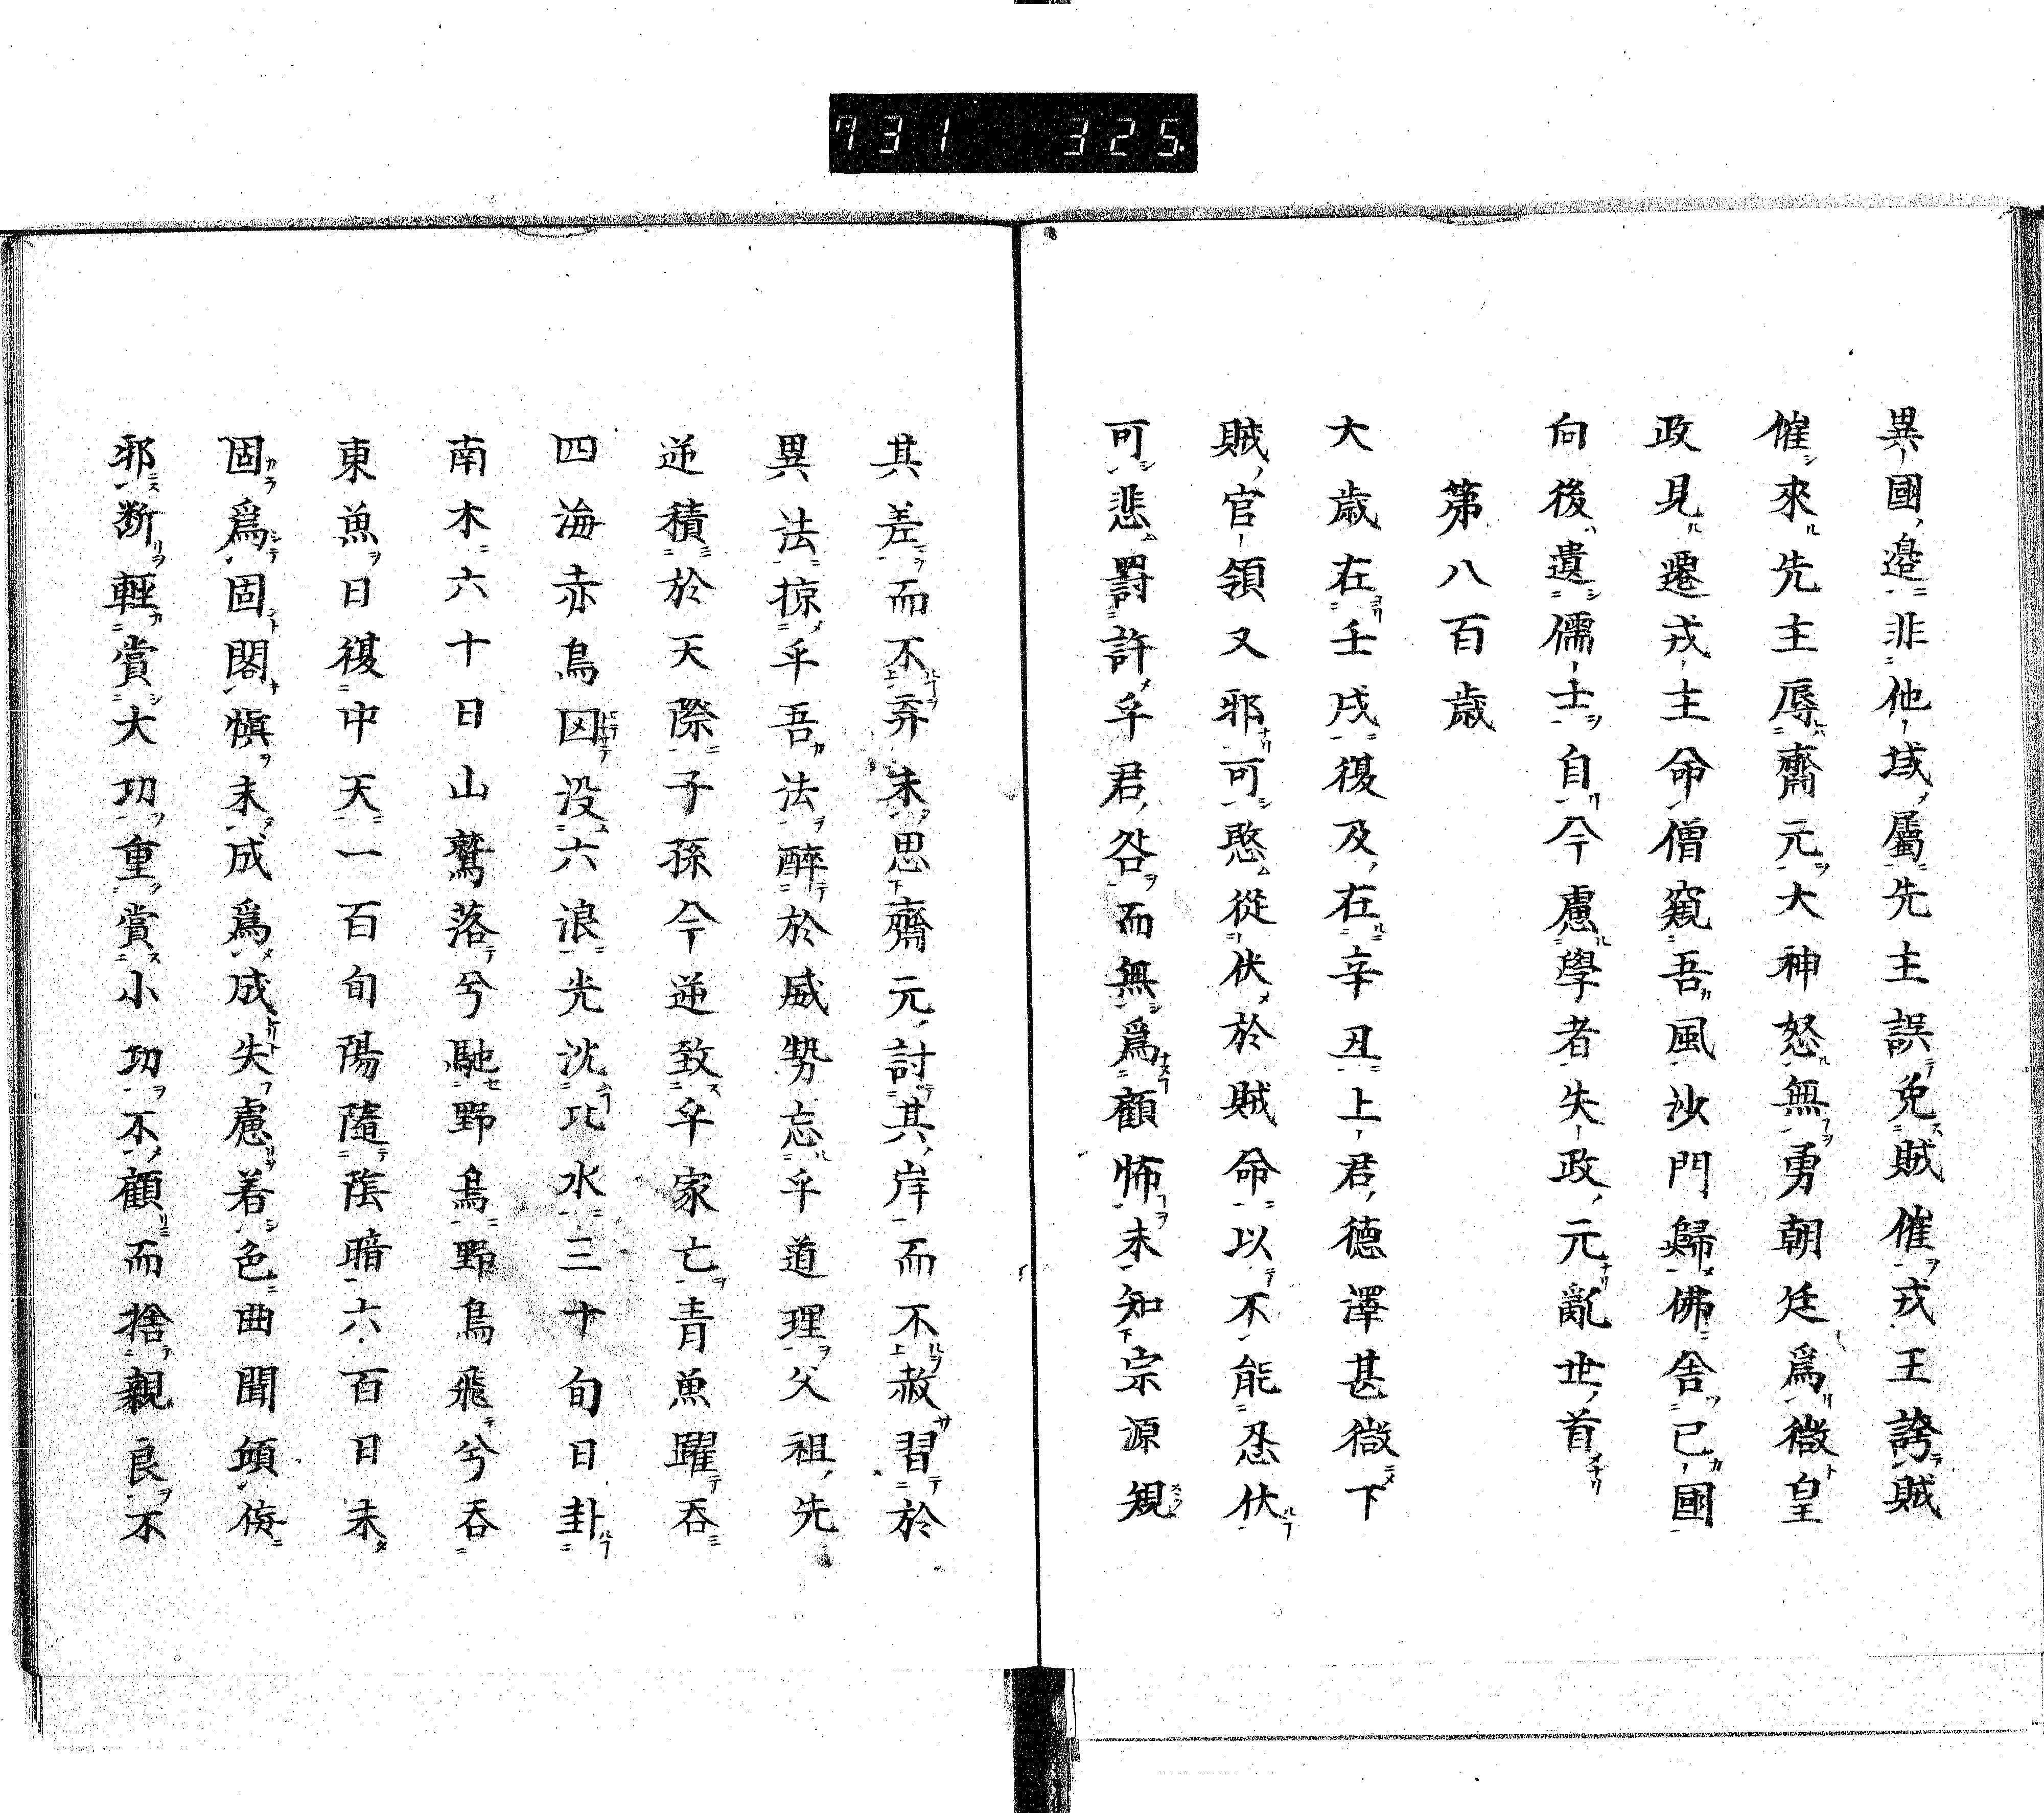 731 325
異國邉非他域屬先主誤免賊催戎王誇賊
催來先主辱齋元大神怒無勇朝廷爲微皇
政見遷戎主命僧窺吾風沙門歸佛舎已國
向後遺儒士自今慮學者失政元亂世首
第八百歳
大歳在壬戌復及在辛丑上君德澤甚微下
賊官領又邪可愍從伏於賊命以不能忍伏
可悲罸許乎君咎而無爲顧怖未知宗源規
其差而不弃未思齋元討其岸而不赦習於
異法掠乎吾法醉於威勢忘乎道理父祖先
逆積於天際子孫今逆致乎家亡青魚躍呑
四海赤烏囚没六浪光沈北水三十旬日卦
南木六十日山鷲落兮馳野烏野烏飛兮呑
東魚日復中天一百旬陽隨陰暗六百日未
固爲固閣愼末成爲成失慮着色曲聞頌侫
邪断輕賞大功重賞小功不顧而捨親良不